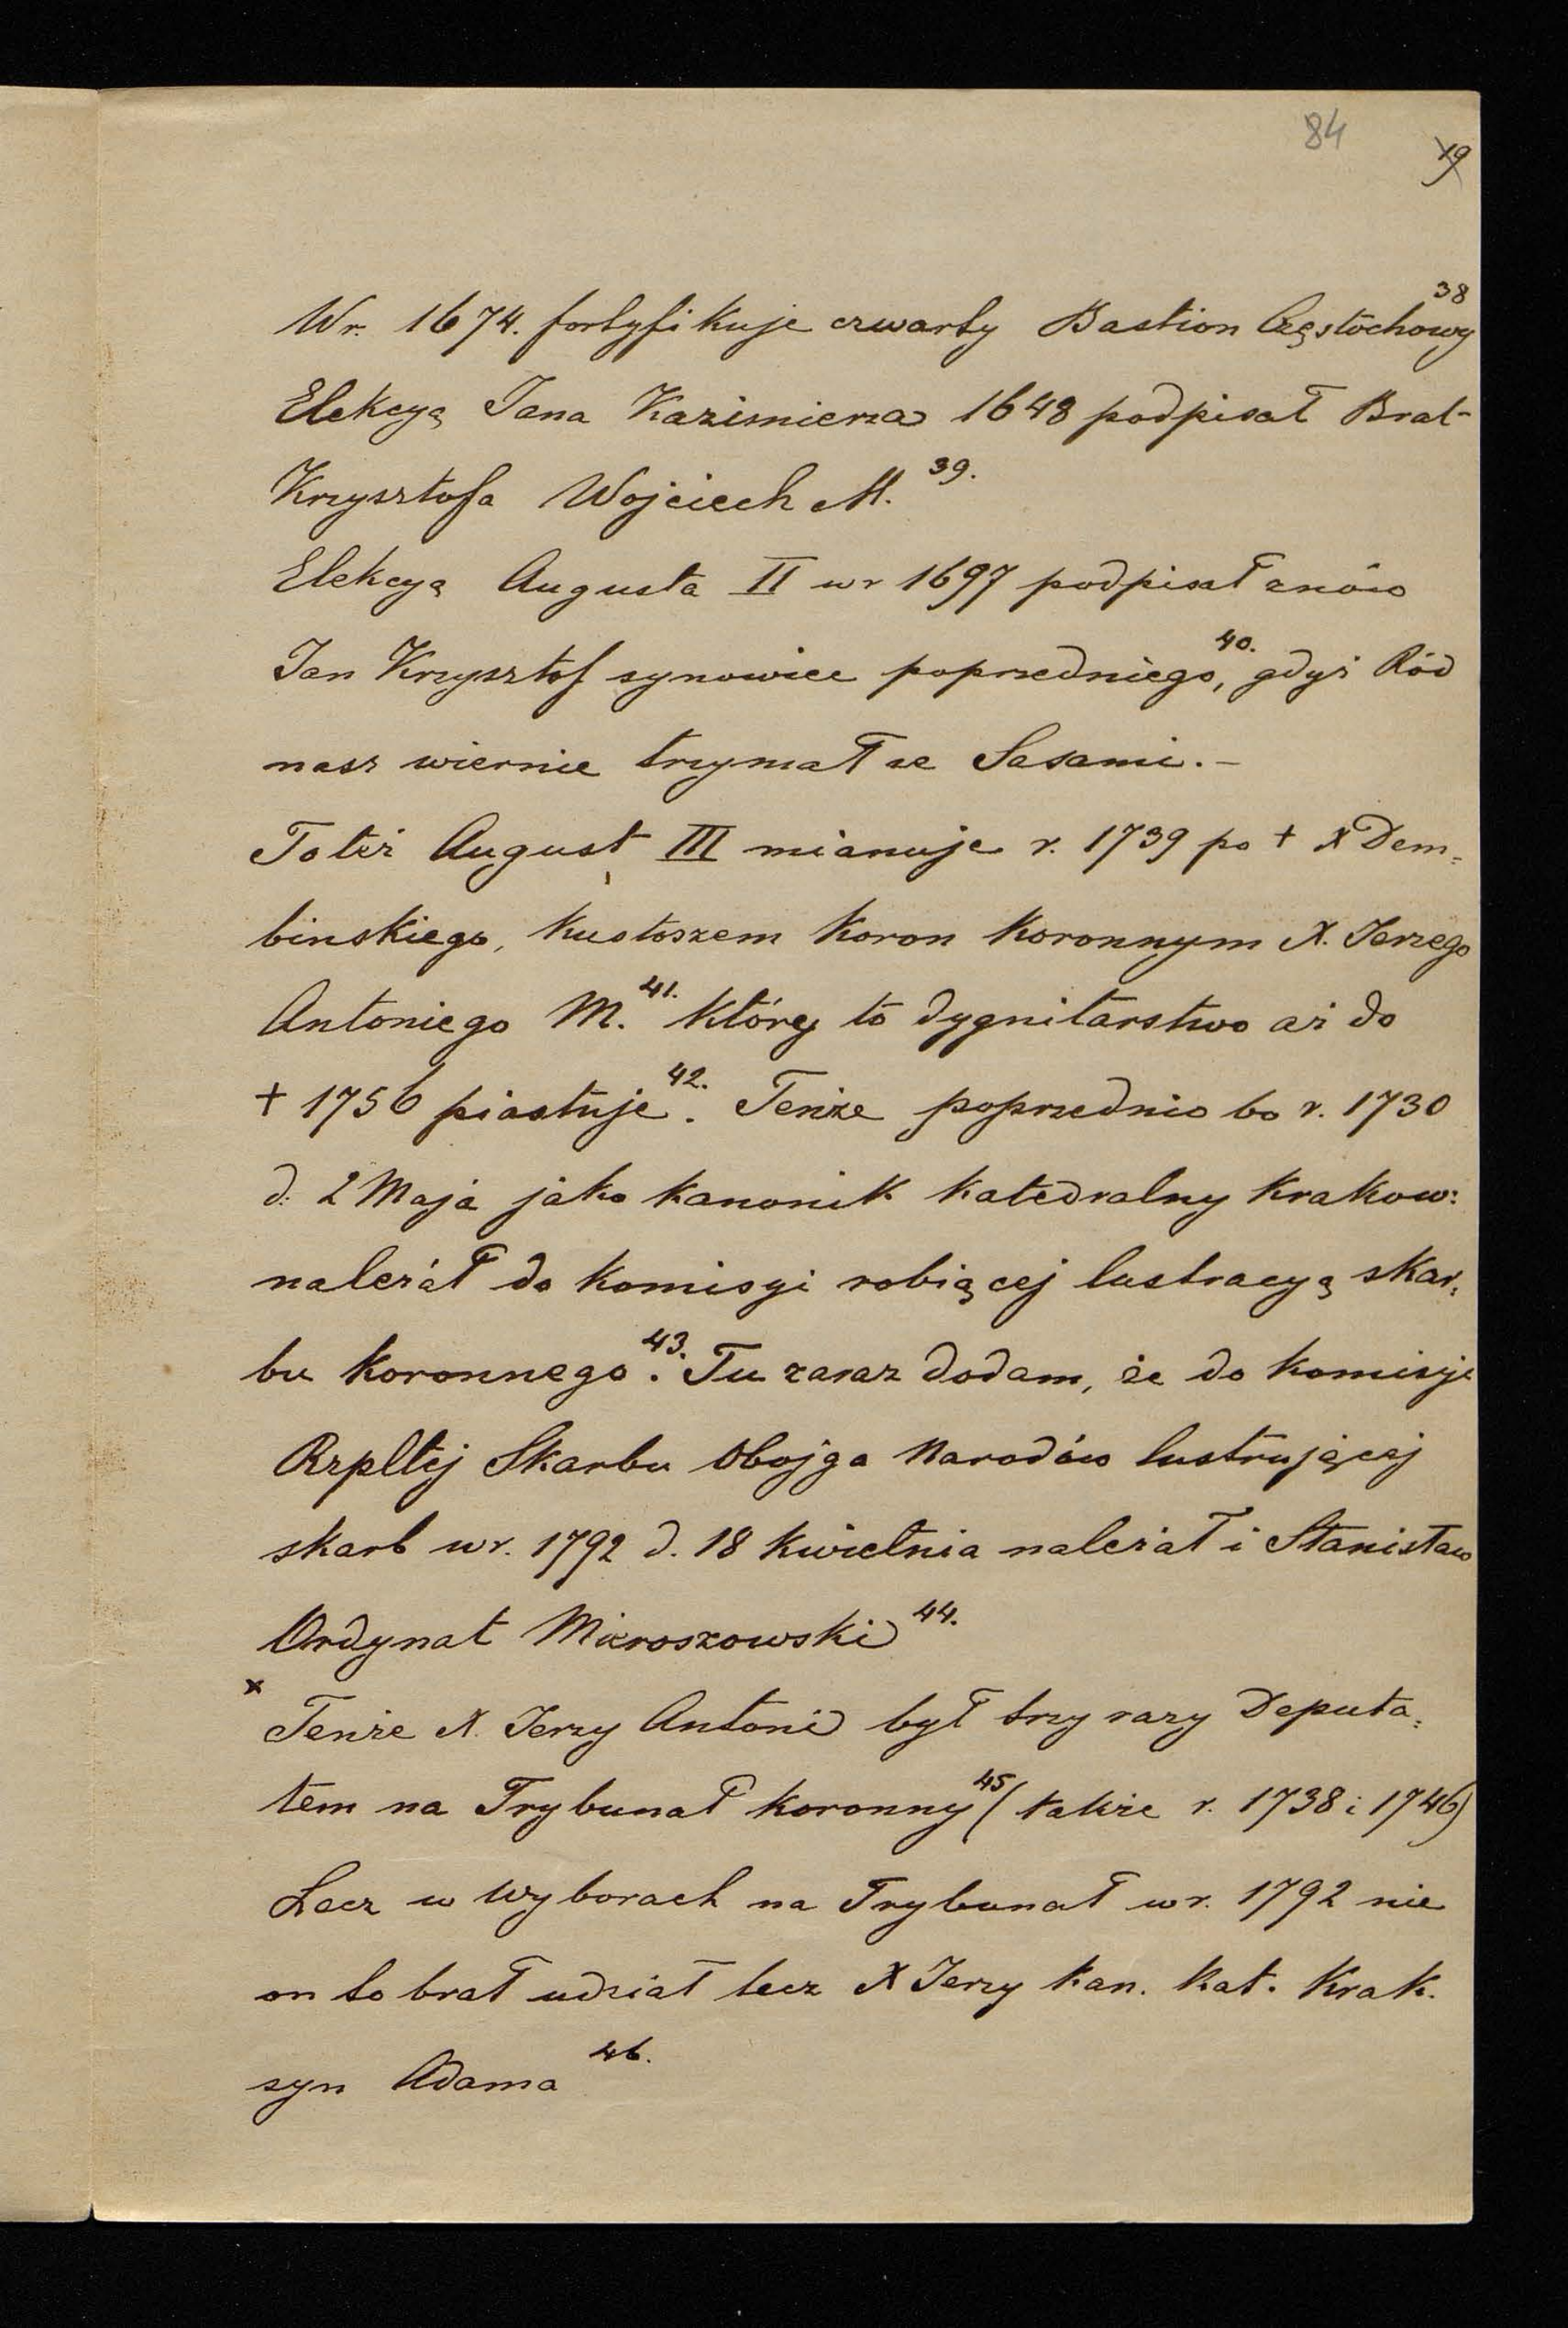 84
19
W r. 1674. fortyfikuje czwarty Bastion Częstochowy 38
Elekcyą Jana Kazimierza 1648 podpisał Brat
Krzysztofa Wojciech M. 39.
Elekcyą Augusta II w r 1697 podpisał znów
Jan Krzysztof synowiec poprzedniego, 40. gdyż Ród
nasz wiernie trzymał ze Sasami.–
Toteż August III mianuje r. 1739 po + X Dem=
binskiego, kustoszem koron koronnym X. Jerzego
Antoniego M. 41. który to dygnitarstwo aż do
+ 1756 piastuje 42. Tenże poprzednio bo r. 1730
d. 2 Maja jako kanonik katedralny krakow:
należał do komisyi robiącej lustracyą skar=
bu koronnego 43. Tu zaraz dodam, że do komisyi
Rzpltéj Skarbu Obojga Narodów lustrującéj
skarb w r. 1792 d. 18 kwietnia należał i Stanisław
Ordynat Mieroszowski 44.
x Tenże X. Jerzy Antoni był trzy razy Deputa=
tem na Trybunał koronny 45 (także r. 1738 i 1746)
Lecz w wyborach na Trybunał w r. 1792 nie
on to brał udział lecz X Jerzy kan. kat. Krak.
syn Adama 46.